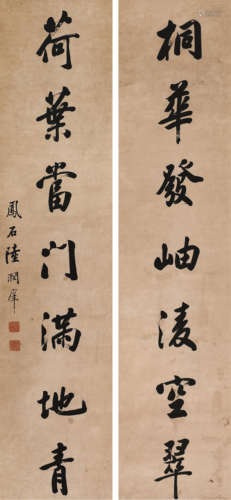 桐華發岫淩空翠
荷葉當門滿地青
鳳石陸潤庠